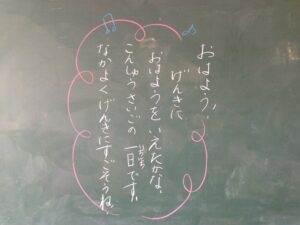 おはよう!
げんきに
おはようを いえたかな。
こんしゅうさいごの 一日です。
いちにち
なかよくげんきにすごそうね。